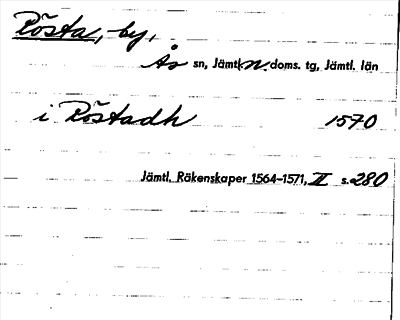 Rösta, by,
Ås sn, Jämtl. n. doms. tg, Jämtl. län
i Röstadh 1570
Jämtl. Räkenskaper 1564–1571, II s. 280